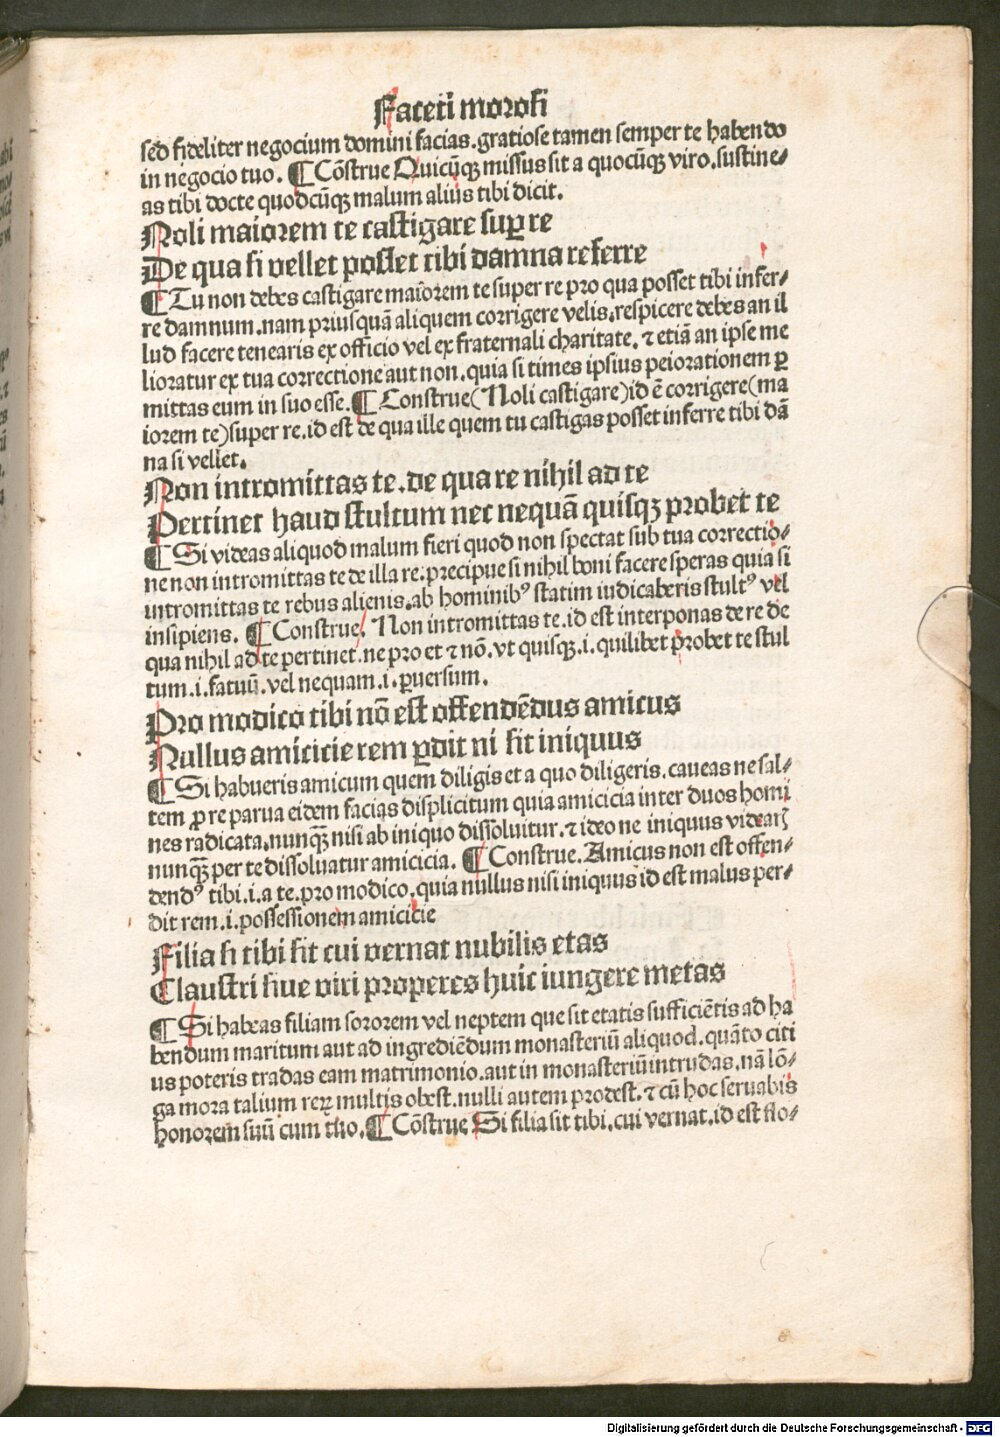 Faceti morosi
sed fideliter negocium domini facias. gratiose tamen semper te habendo
in negocio tuo. ¶ Cōstrue Quicūqꝫ missus sit a quocūqꝫ viro. sustine⸗
as tibi docte quodcūqꝫ malum alius tibi dicit.
Noli maiorem te castigare suꝑ re
De qua si vellet posset tibi damna referre
¶ Tu non debes castigare maiorem te super re pro qua posset tibi infer⸗
re damnum. nam priusquā aliquem corrigere velis. respicere debes an il
lud facere tenearis ex officio vel ex fraternali charitate. ⁊ etiā an ipse me
lioratur ex tua correctione aut non. quia si times ipsius peiorationem ꝑ
mittas eum in suo esse. ¶ Construe (Noli castigare) id ē corrigere (ma
iorem te) super re. id est de qua ille quem tu castigas posset inferre tibi dā
na si vellet.
Non intromittas te. de qua re nihil ad te
Pertinet haud stultum nec nequā quisqꝫ probet te
¶ Si videas aliquod malum fieri quod non spectat sub tua correctio⸗
ne non intromittas te de illa re. precipue si nihil boni facere speras quia si
intromittas te rebus alienis. ab hominibꝰ statim iudicaberis stultꝰ vel
insipiens. ¶ Construe. Non intromittas te. id est interponas de re de
qua nihil ad te pertinet. ne pro et ⁊ nō. vt quisqꝫ .i. quilibet probet te stul
tum .i. fatuū. vel nequam .i. ꝑuersum.
Pro modico tibi nō est offendēdus amicus
Nullus amicicie rem ꝑdit ni sit iniquus
¶ Si habueris amicum quem diligis et a quo diligeris. caueas ne sal⸗
tem ꝓ re parua eidem facias displicitum quia amicicia inter duos homi
nes radicata. nunqꝫ̄ nisi ab iniquo dissoluitur. ⁊ ideo ne iniquus videarꝭ
nunqꝫ̄ per te dissoluatur amicicia. ¶ Construe. Amicus non est offen⸗
dendꝰ tibi .i. a te. pro modico. quia nullus nisi iniquus id est malus per⸗
dit rem .i. possessionem amicicie
Filia si tibi sit cui vernat nubilis etas
Claustri siue viri properes huic iungere metas
¶ Si habeas filiam sororem vel neptem que sit etatis sufficiētis ad ha
bendum maritum aut ad ingrediēdum monasteriū aliquod. quāto citi
us poteris tradas eam matrimonio. aut in monasteriū intrudas. nā lō⸗
ga mora talium reꝝ multis obest. nulli autem prodest. ⁊ cū hoc seruabis
honorem suū cum tuo. ¶ Cōstrue Si filia sit tibi. cui vernat. id est flo⸗
Digitalisierung gefördert durch die Deutsche Forschungsgemeinschaft - DFG